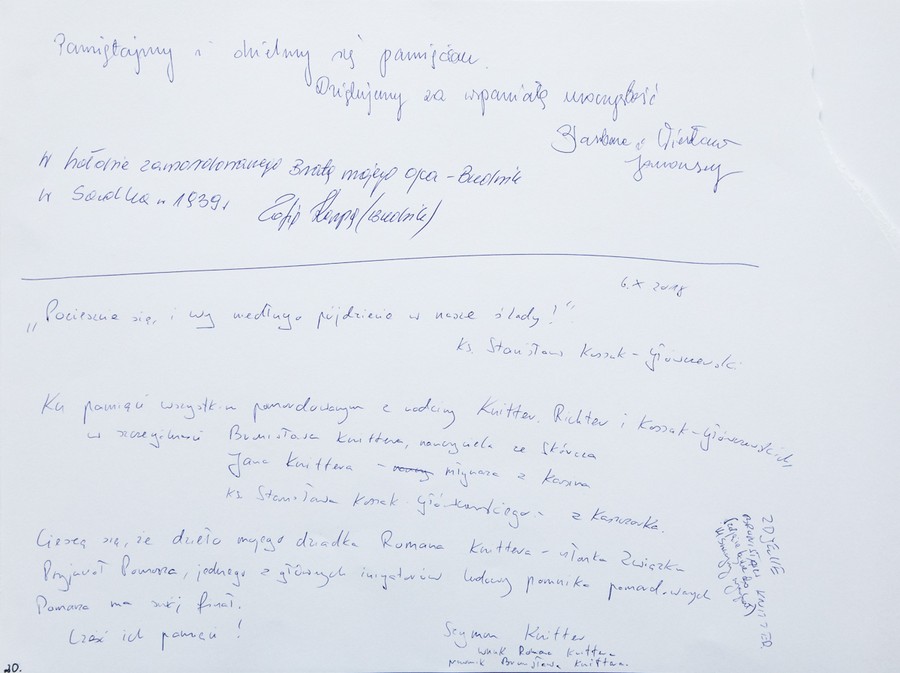 Pamiętajmy i dzielmy się pamięcią.
Dziękujemy za wspaniałą uroczystość
Barbara i Wiesław
W hołdzie zamordowanego Brata mojego ojca - Budnik
w 1939 r
Zofia (Budnik)
6.X 2018
„Pocieszcie się, i wy niedługo pójdziecie w nasze ślady!"
ks. Stanisław Kossak-Główczewski
Ku pamięci wszystkim pomordowanym z rodziny Knitter, Richter i Kossak-Główczewskich
w szczególności Bronisława Knittera, nauczyciela ze Skórcza
Jana Knittera - młynarza z
ks. Stanisława Kossak Główczewskiego - z
Cieszę się, że dzieło mojego dziadka Romana Knittera - członka Związku
Przyjaciół Pomorza, jednego z głównych inicjatorów budowy pomnika pomordowanych
Pomorza ma swój finał.
Cześć ich pamięci!
Szymon Knitter
wnuk Romana Knittera
Bronisława Knittera.
ZDJĘCIE
BRONISŁAWA KNITTERA
20.